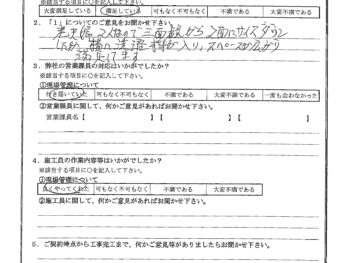 ※該当する項目に○を記入して下さい。
大変満足している 満足している 可もなく不可もなく 不満である 大変不満である
2．「1」についてのご意見をお聞かせ下さい。
満足
3．弊社の営業課員の対応はいかがでしたか？
※該当する項目に○を記入して下さい。
①現場管理について
行き届いていた 可もなく不可もなく 不満である 大変不満である 一度も会わなかった
②営業課員に関して、何かご意見があればお聞かせ下さい。
営業課員名【 】【 】【 】
4．施工員の作業内容等はいかがでしたか？
※該当する項目に○を記入して下さい。
①現場管理について
良くやってくれた 可もなく不可もなく 不満である 大変不満である
②施工員に関して、何かご意見があればお聞かせ下さい。
5．ご契約時点から工事完工まで、何かご意見等がありましたらお聞かせ下さい。